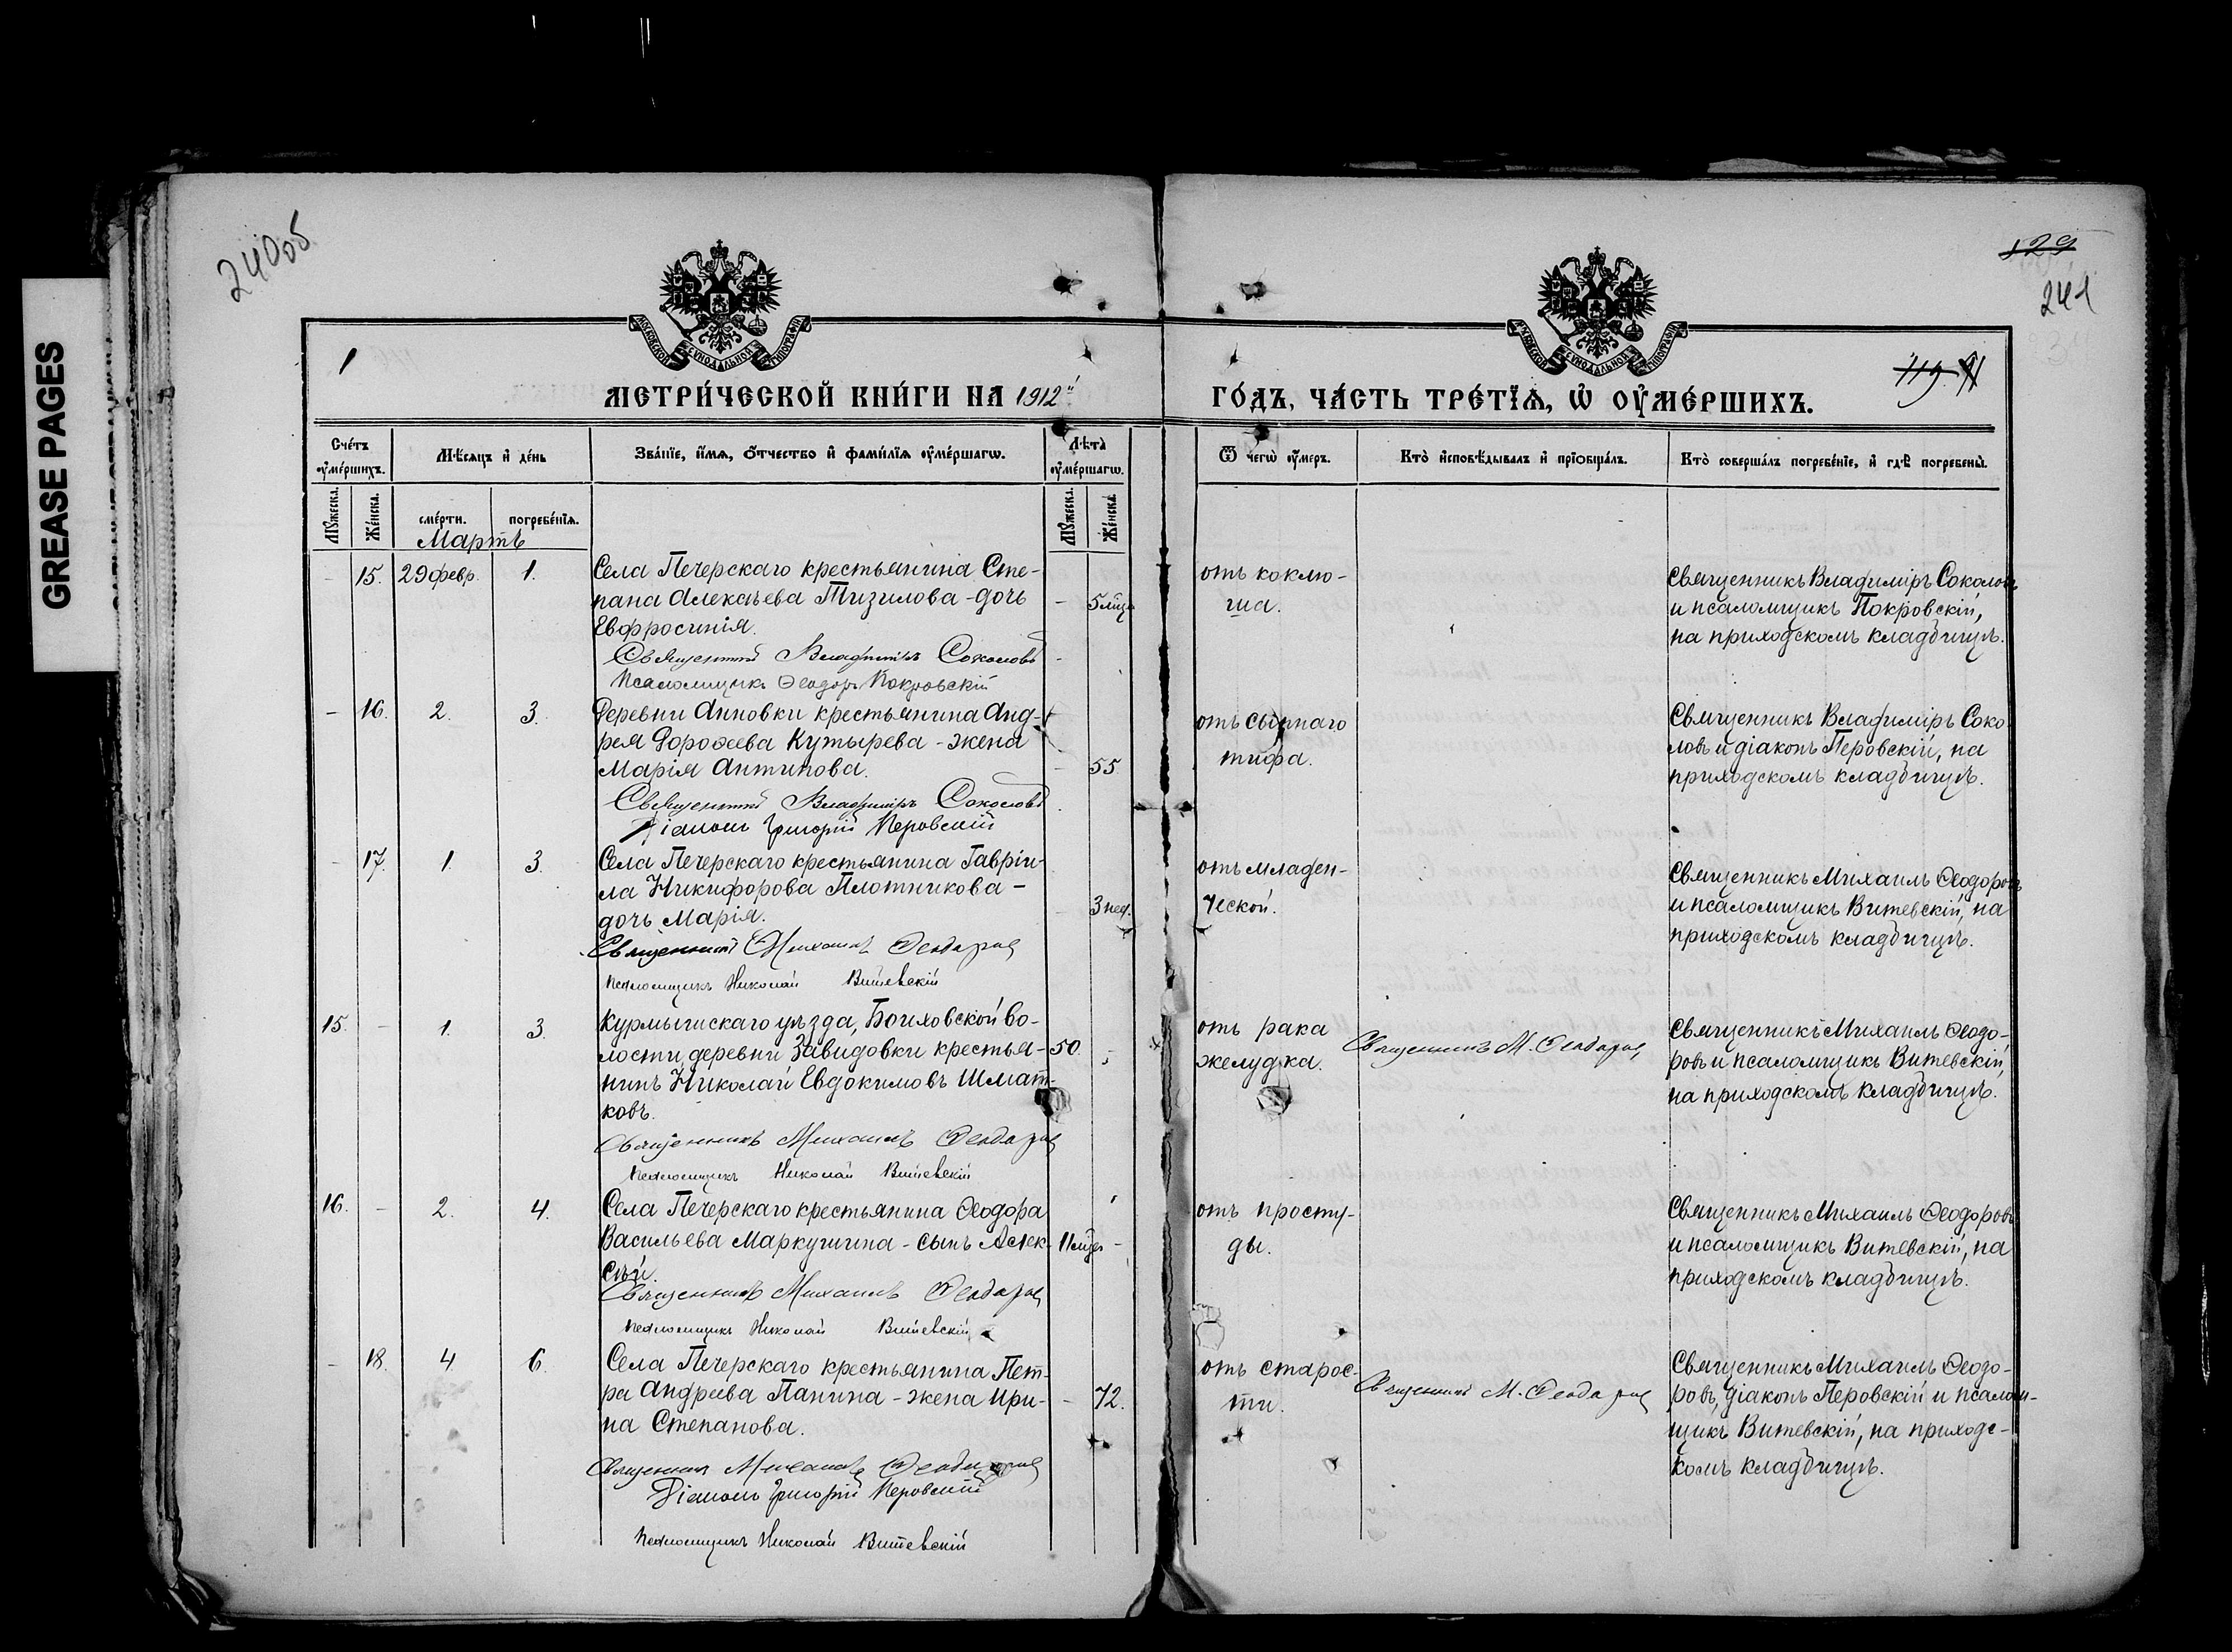 GREASE PAGES
240об
129
241
1
119
МОСКОВСКОЙ СѴНОДАЛЬНОЙ ТИПОГРАФІИ
МОСКОВСКОЙ СѴНОДАЛЬНОЙ ТИПОГРАФІИ
МЕТРИ́ЧЕСКОЙ КНИ́ГИ НА 1912й
ГО́ДЪ, ЧА́СТЬ ТРЕ́ТЇѦ, Ѡ҆ ОУ҆МЕ́РШИХЪ.
Сче́тъ оу҆ме́ршихъ.
Мѣ́сяцъ и҆ де́нь
Зва́нїе, и҆́мѧ, ѻ҆́тчество и҆ фами́лїѧ оу҆ме́ршагѡ.
Лѣ́та оу҆ме́ршагѡ.
Ѿ чегѡ̀ оу҆́меръ.
Кто̀ и҆сповѣ́дывалъ и҆ прїѡбща́лъ.
Кто̀ соверша́лъ погребе́нїе, и҆ гдѣ̀ погребены̀.
Мꙋ́жеска.
Же́нска.
сме́рти.
погребе́нїѧ.
Мꙋ́жеска.
Же́нска.
Мартъ
- 15. 29 февр. 1.
Села Печерскаго крестьянина Сте-
пана Алексѣева Тизилова - дочь
Евфросинія.
- 5 мѣц.
Священникъ Владиміръ Соколовъ
Псаломщикъ Ѳеодоръ Покровскій
отъ коклю-
ша.
Священникъ Владиміръ Соколовъ
и псаломщикъ Покровскій,
на приходскомъ кладбищѣ.
- 16. 2. 3.
Деревни Анновки крестьянина Анд-
рея Дороѳеева Кутырева - жена
Марія Антипова.
- 55.
Священникъ Владиміръ Соколовъ
Діаконъ Григорій Перовскій
отъ сыпнаго
тифа.
Священникъ Владиміръ Соко
ловъ и діаконъ Перовскій, на
приходскомъ кладбищѣ.
- 17. 1. 3.
Села Печерскаго крестьянина Гавріи-
ла Никифорова Плотникова -
дочь Марія.
- 3 нед.
Священникъ Михаилъ Ѳеодоровъ
Псаломщикъ Николай Витевскій
отъ младен-
ческой.
Священникъ Михаилъ Ѳеодоровъ
и псаломщикъ Витевскій, на
приходскомъ кладбищѣ.
15. - 1. 3.
Курмышскаго уѣзда, Болховской во-
лости, деревни Завидовки крестья-
нинъ Николай Евдокимовъ Шмат-
ковъ.
50. -
Священникъ Михаилъ Ѳеодоровъ
Псаломщикъ Николай Витевскій
отъ рака
желудка.
Священникъ М. Ѳеодоровъ
Священникъ Михаилъ Ѳеодо-
ровъ и псаломщикъ Витевскій,
на приходскомъ кладбищѣ.
16. - 2. 4.
Села Печерскаго крестьянина Ѳеодора
Васильева Маркушина - сынъ Алек-
сѣй.
11 мѣц. -
Священникъ Михаилъ Ѳеодоровъ
Псаломщикъ Николай Витевскій
отъ просту-
ды.
Священникъ Михаилъ Ѳеодоровъ
и псаломщикъ Витевскій, на
приходскомъ кладбищѣ.
- 18. 4 6.
Села Печерскаго крестьянина Пет-
ра Андреева Панина - жена Ири-
на Степанова.
- 72.
Священникъ Михаилъ Ѳеодоровъ
Діаконъ Григорій Перовскій
Псаломщикъ Николай Витевскій
отъ старос-
ти.
Священникъ М. Ѳеодоровъ
Священникъ Михаилъ Ѳеодо-
ровъ, діаконъ Перовскій и псалом-
щикъ Витевскій, на приходс-
комъ кладбищѣ.